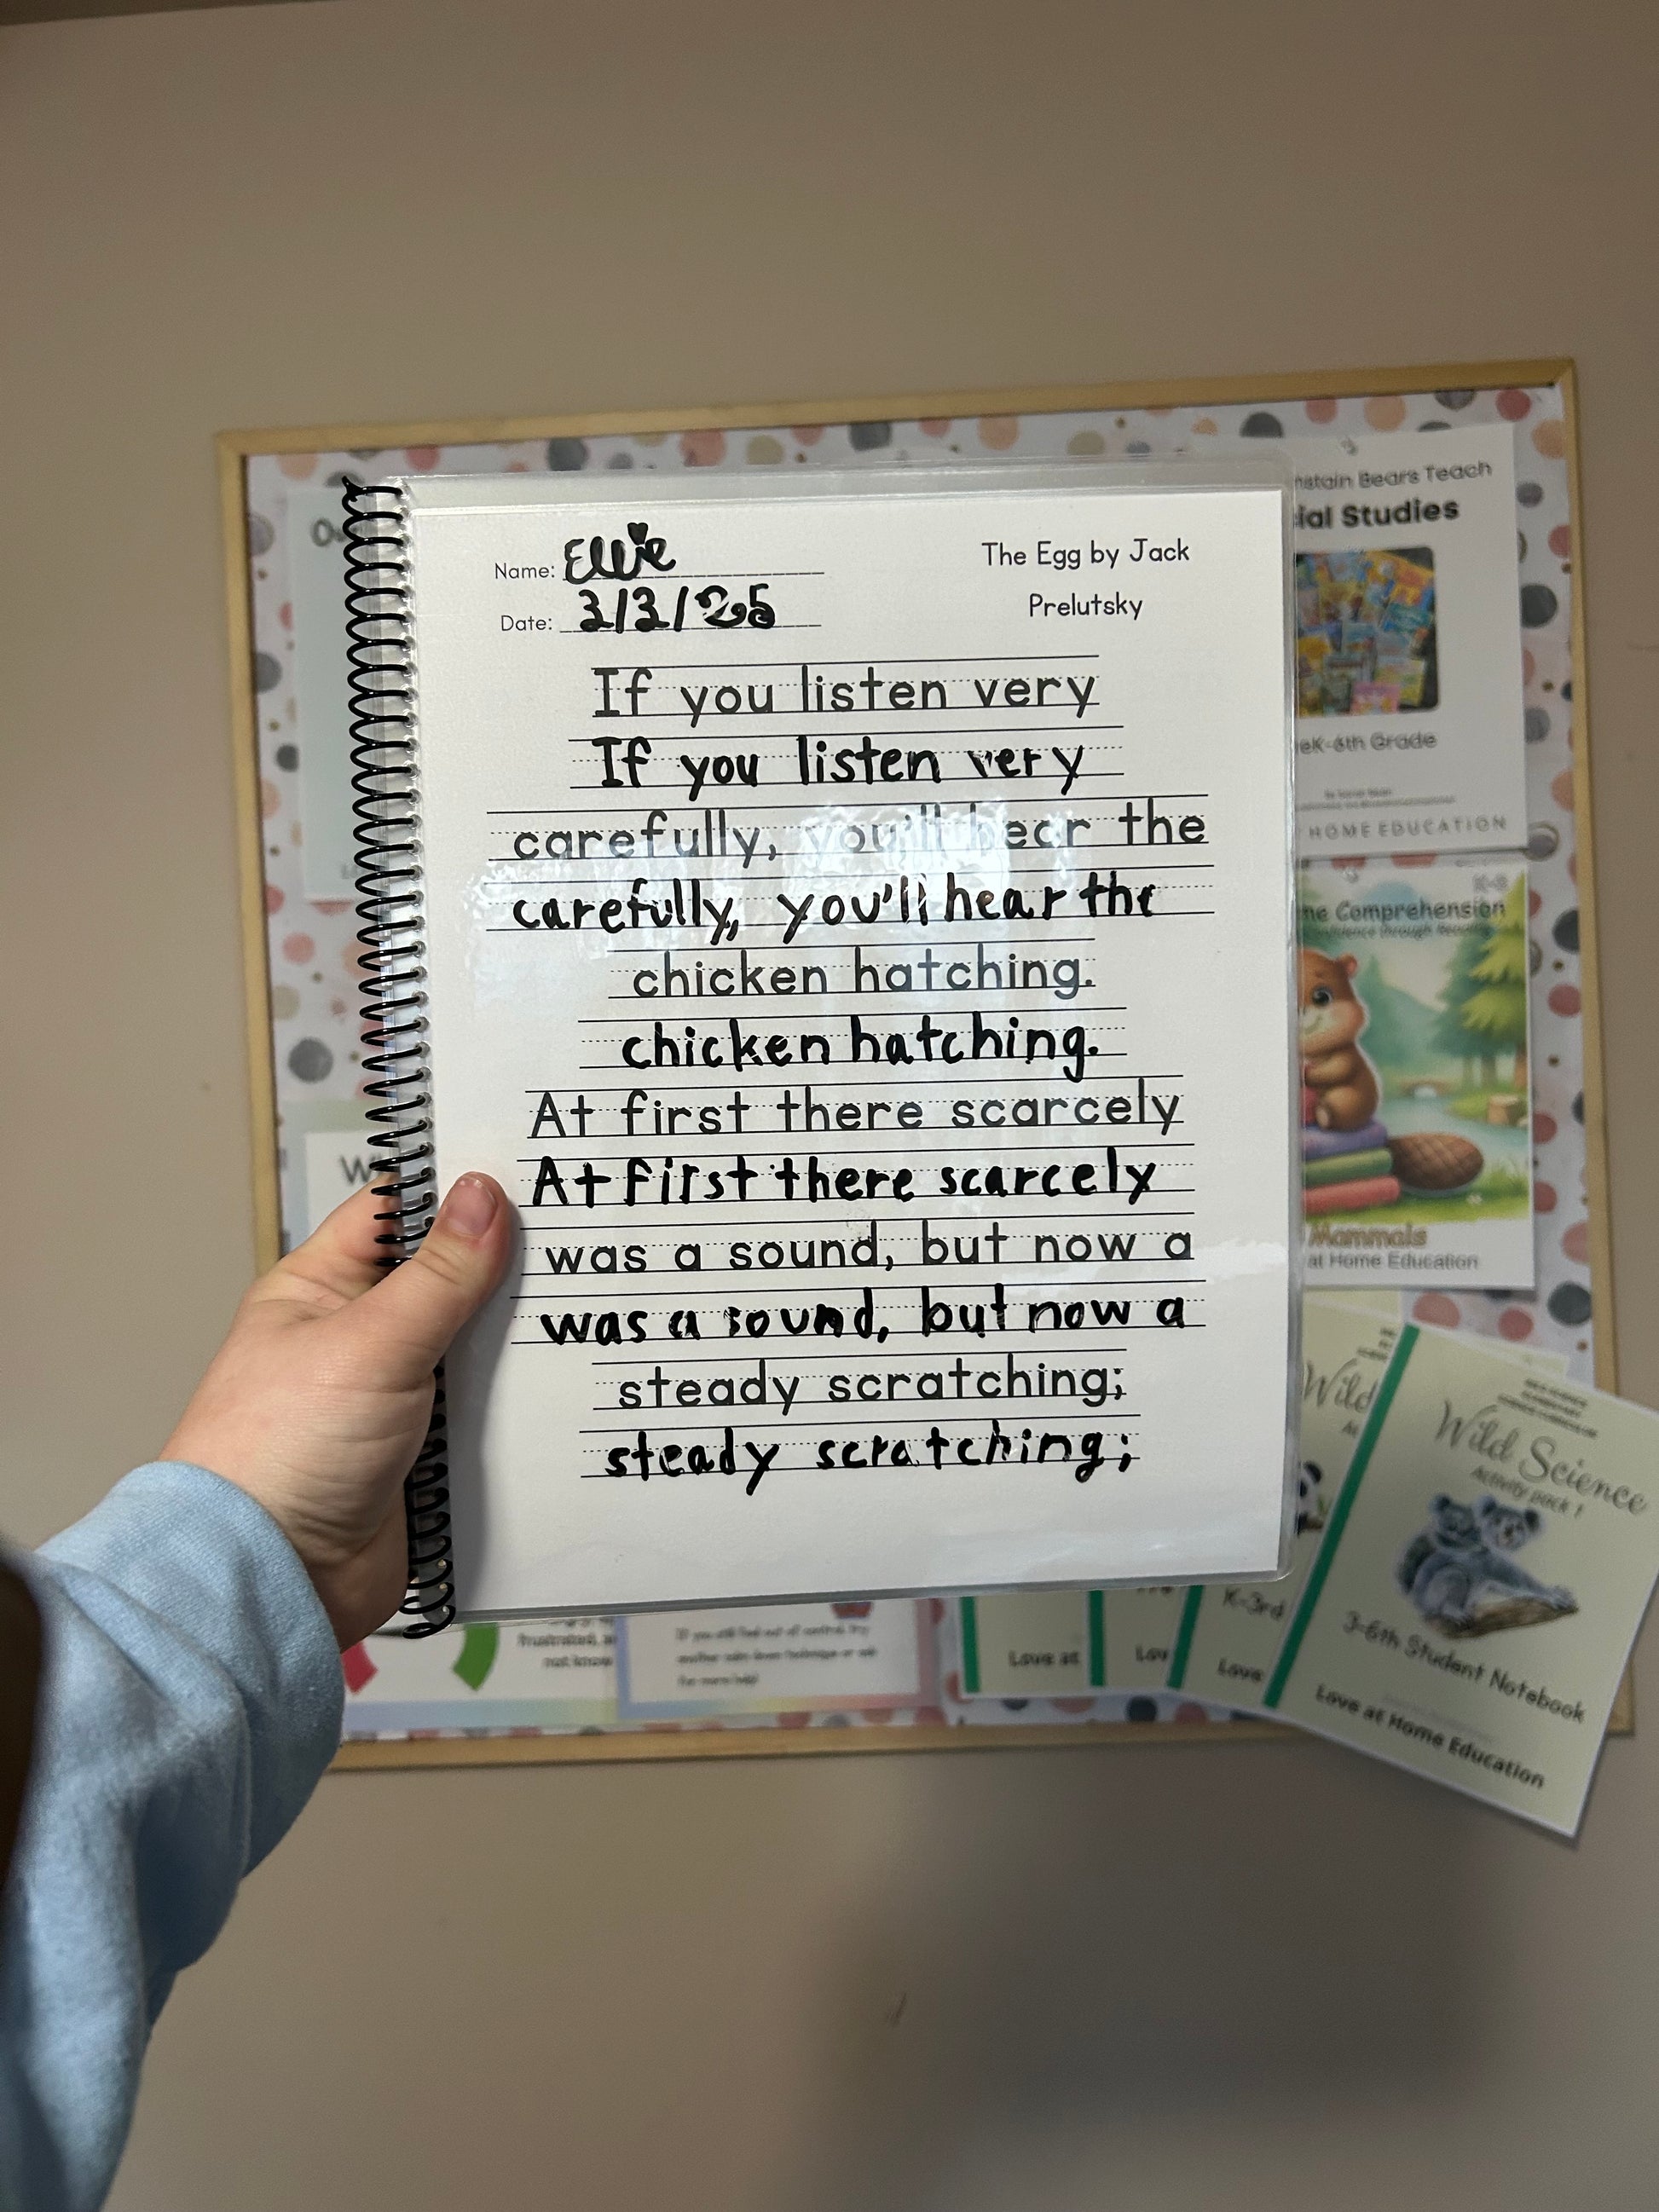 Name: Ellie
Date: 3/3/25
The Egg by Jack
Prelutsky
If you listen very
If you listen very
carefully, you'll hear the
carefully, you'll hear the
chicken hatching.
chicken hatching.
At first there scarcely
At first there scarcely
was a sound, but now a
was a sound, but now a
steady scratching;
steady scratching;
Bears Teach
Studies
6th Grade
HOME EDUCATION
K-3
Comprehension
through Reading
Mammals
at Home Education
Wild
Wild Science
Activity pack 1
K-3rd
3-6th Student Notebook
Love at
Love
Love at Home Education
frustrated,
not know
If you still feel out of control try
another calm down technique or ask
for more help!